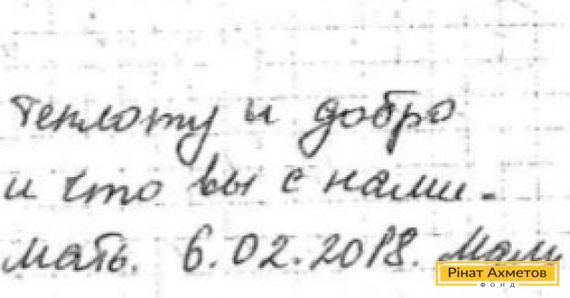 теплоту и добро
и что вы с нами.
мать. 6.02.2018.
Рінат Ахметов
ФОНД